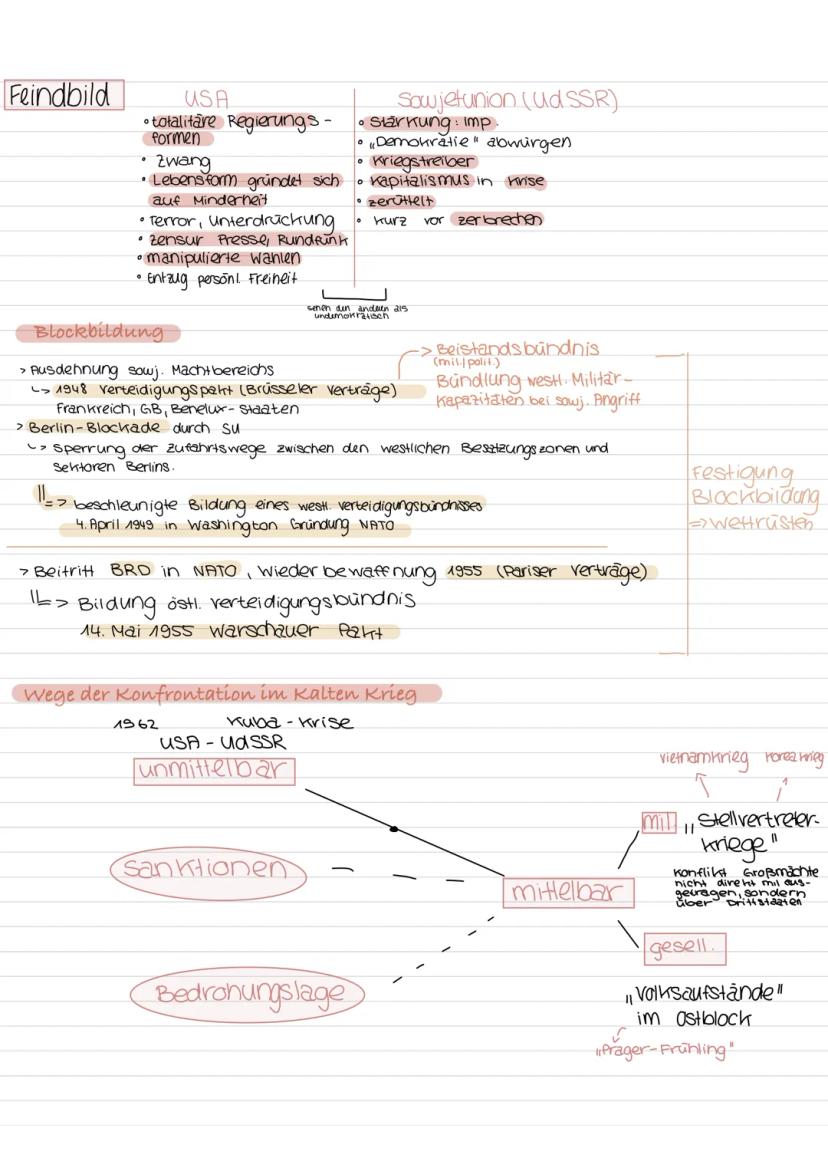 Feindbild
USA
• totalitäre Regierungs-
formen
• Zwang
• Lebensform gründet sich
auf Minderheit
• Terror, Unterdrückung
• Zensur Presse, Rundfunk
• manipulierte Wahlen
• Entzug persönl. Freiheit
Sowjetunion (UdSSR)
• Stärkung: Imp.
• „Demokratie" abwürgen
• Kriegstreiber
• Kapitalismus in Krise
• zerüttelt
• kurz vor zerbrechen
sehen den anderen als
undemokratisch
Blockbildung
> Ausdehnung sowj. Machtbereichs
↳ 1948 Verteidigungspakt (Brüsseler Verträge)
Frankreich, GB, Benelux-Staaten
-> Beistandsbündnis
(mil./polit.)
Bündlung westl. Militär-
kapazitäten bei sowj. Angriff
> Berlin-Blockade durch SU
↳ Sperrung der Zufahrtswege zwischen den westlichen Besatzungszonen und
Sektoren Berlins.
=> beschleunigte Bildung eines westl. Verteidigungsbündnisses
4. April 1949 in Washington Gründung NATO
> Beitritt BRD in NATO, Wiederbewaffnung 1955 (Pariser Verträge)
=> Bildung östl. Verteidigungsbündnis
14. Mai 1955 Warschauer Pakt
Festigung
Blockbildung
=> Wettrüsten
Wege der Konfrontation im Kalten Krieg
1962 Kuba-Krise
USA - UdSSR
unmittelbar
Sanktionen
Bedrohungslage
mittelbar
Vietnamkrieg Koreakrieg
mil. „Stellvertreter-
kriege"
Konflikt Großmächte
nicht direkt mil aus-
getragen, sondern
über Drittstaaten
gesell.
„Volksaufstände"
im Ostblock
„Prager-Frühling"